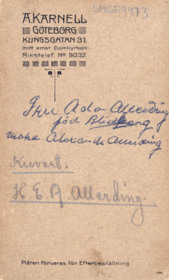 SMCA9973
A.KARNELL
GÖTEBORG
KUNGSGATAN 31
midt emot Domkyrkan.
Rikstelef. Nº 9032.
Fru Ada Allerding
född
Alexander Allerding
Kuvert:
H. E. A Allerding.
Plåten förvaras för Efterbeställning